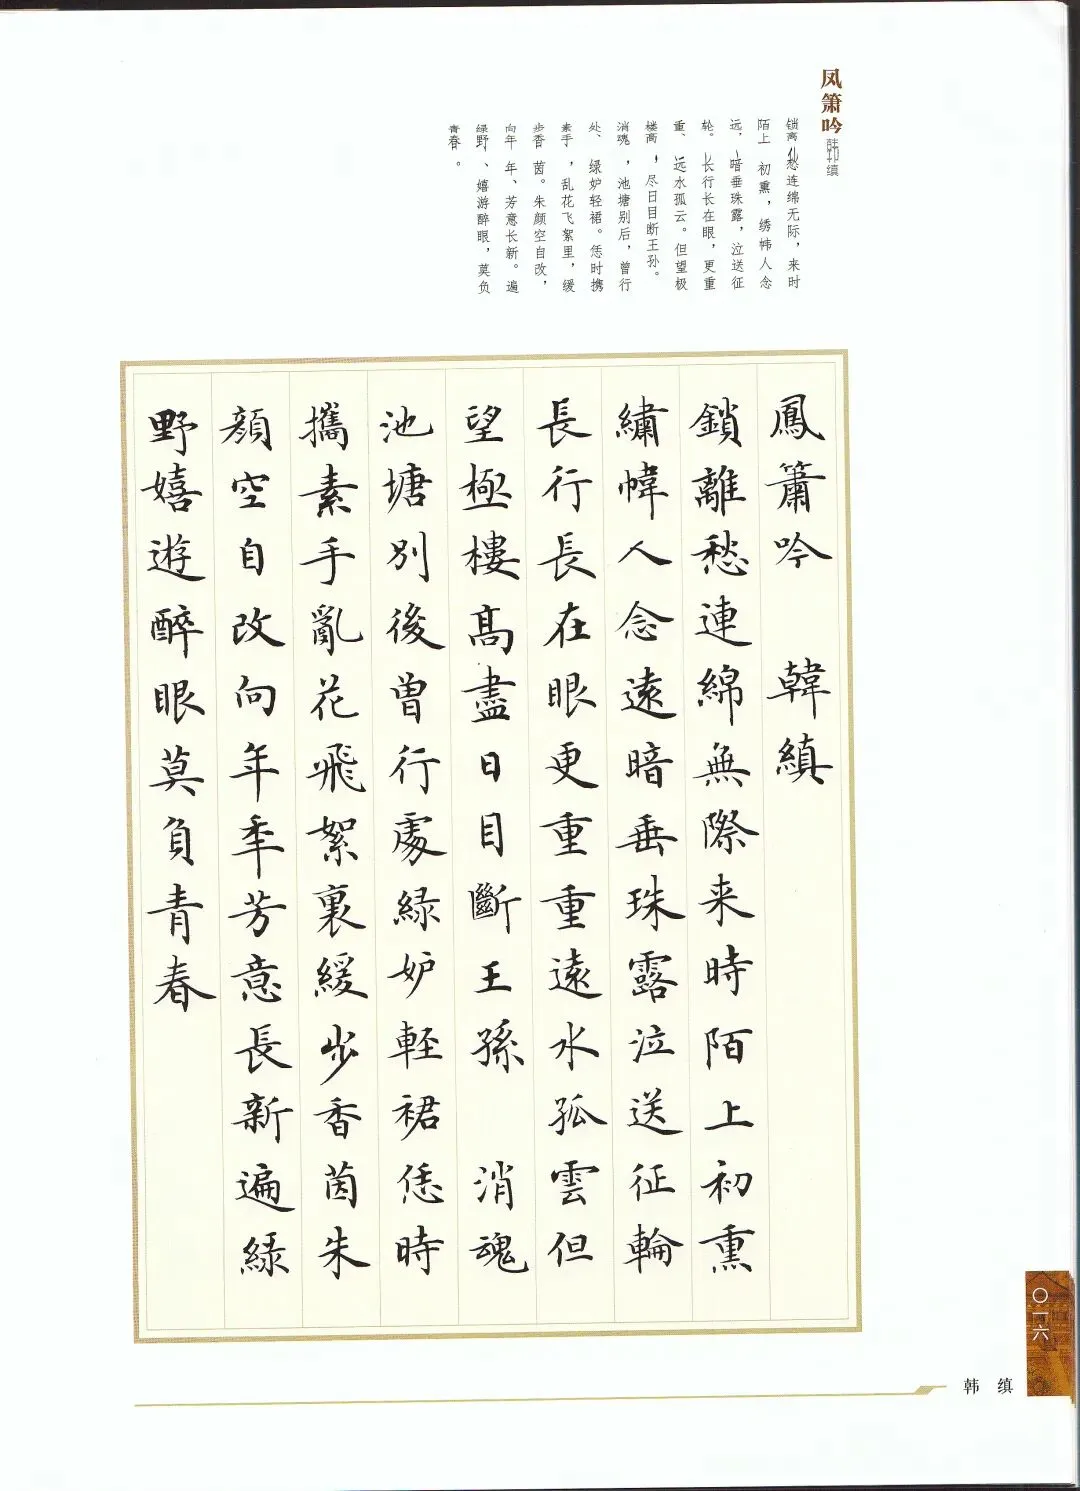 凤箫吟 韩缜
锁离愁连绵无际，来时
陌上初熏，绣帏人念
远，暗垂珠露，泣送征
轮。长行长在眼，更重
重、远水孤云。但望极
楼高，尽日目断王孙。
消魂，池塘别后，曾行
处、绿妒轻裙。恁时携
素手，乱花飞絮里，缓
步香茵。朱颜空自改，
向年年、芳意长新。遍
绿野、嬉游醉眼，莫负
青春。
鳳簫吟 韓縝
鎖離愁連綿無際来時陌上初熏
繡幃人念遠暗垂珠露泣送征輪
長行長在眼更重重遠水孤雲但
望極樓高盡日目斷王孫 消魂
池塘別後曾行處緑妒軽裙恁時
攜素手亂花飛絮裏緩步香茵朱
顔空自改向年年芳意長新遍緑
野嬉遊醉眼莫負青春
〇一六
韩缜